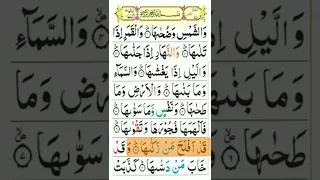 وَالشَّمْسِ وَضُحٰىهَا ۙ وَالْقَمَرِ اِذَا
تَلٰىهَا ۙ وَالنَّهَارِ اِذَا جَلّٰىهَا ۙ
وَالَّيْلِ اِذَا يَغْشٰىهَا ۙ وَالسَّمَآءِ
وَمَا بَنٰىهَا ۙ وَالْاَرْضِ وَمَا
طَحٰىهَا ۙ وَنَفْسٍ وَّمَا سَوّٰىهَا ۙ
فَاَلْهَمَهَا فُجُوْرَهَا وَتَقْوٰىهَا ۙ
قَدْ اَفْلَحَ مَنْ زَكّٰىهَا ۙ وَقَدْ
خَابَ مَنْ دَسّٰىهَا ۙ كَذَّبَتْ